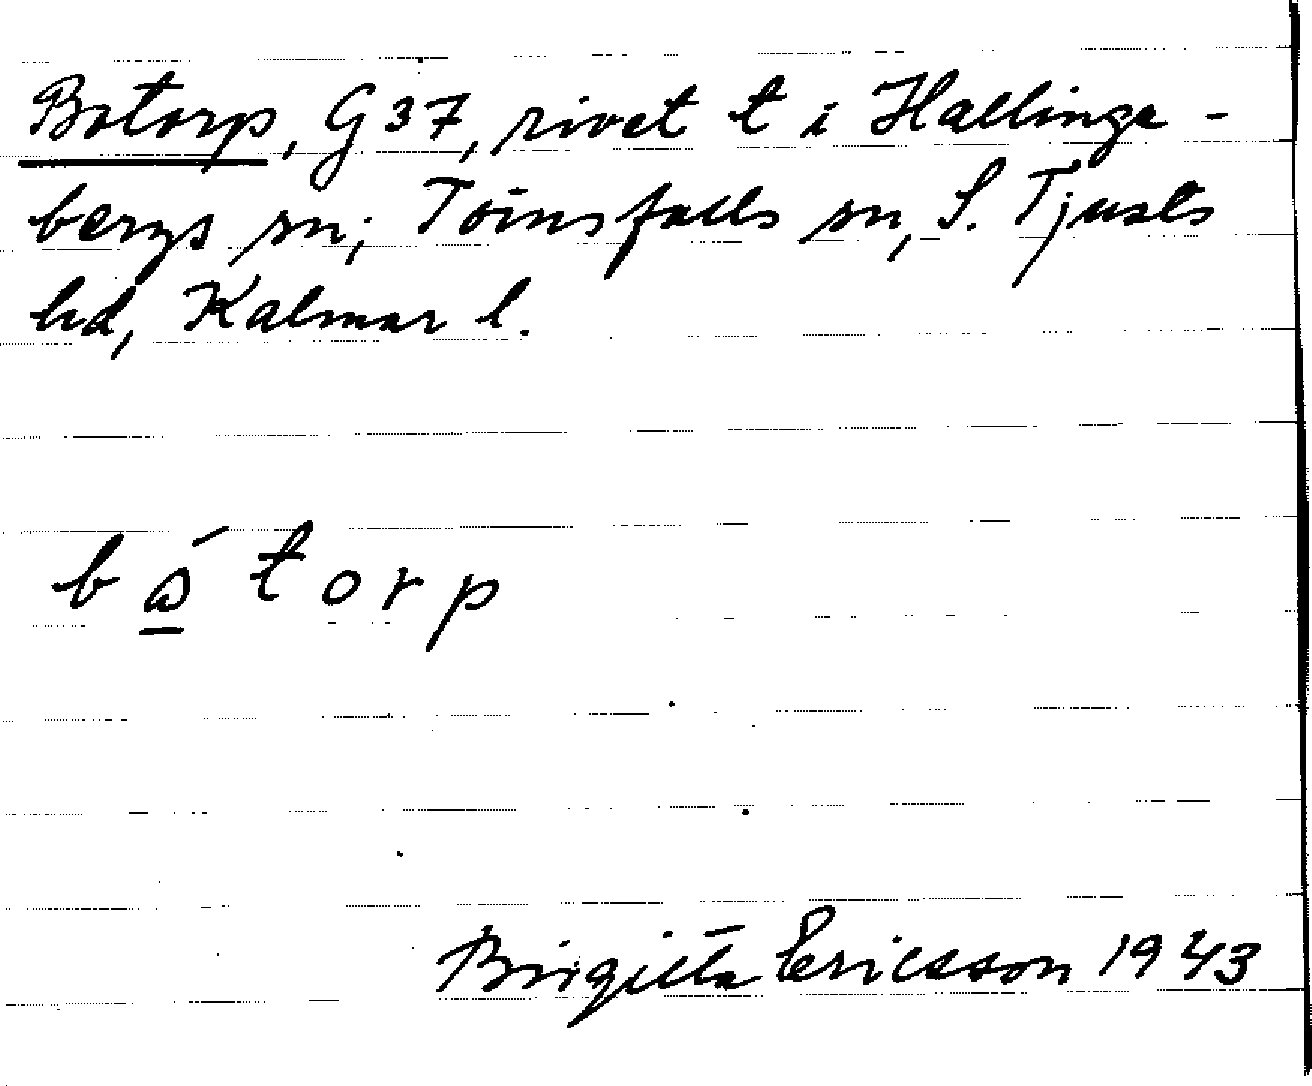 Botorp, G 37, rivet t i Hallinge-
bergs sn; Törnsfalls sn, S. Tjusts
hd, Kalmar l.
b ώ̲ t o r p
Birgitta Ericsson 1943